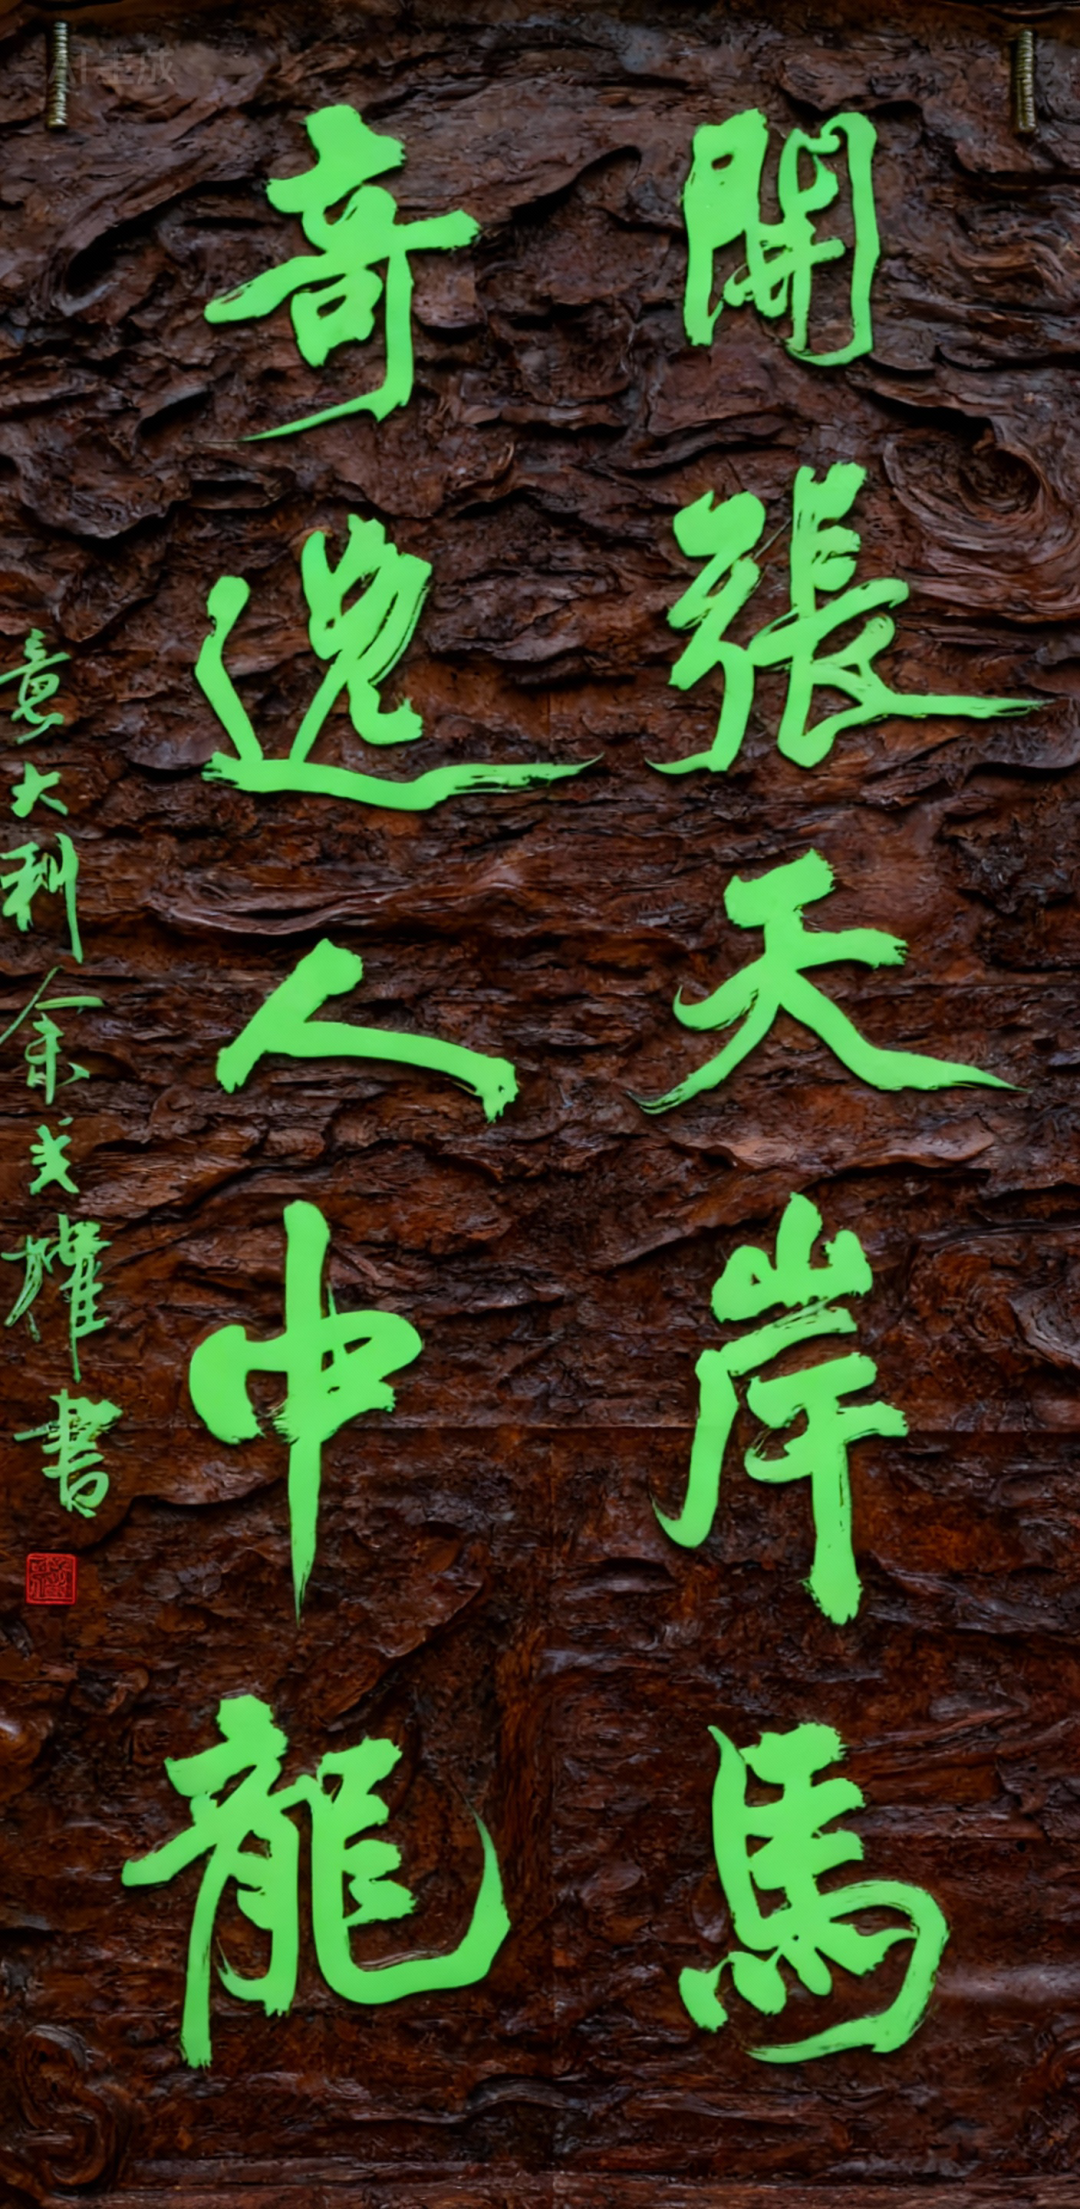 開張天岸馬
奇逸人中龍
意大利余戈耀書